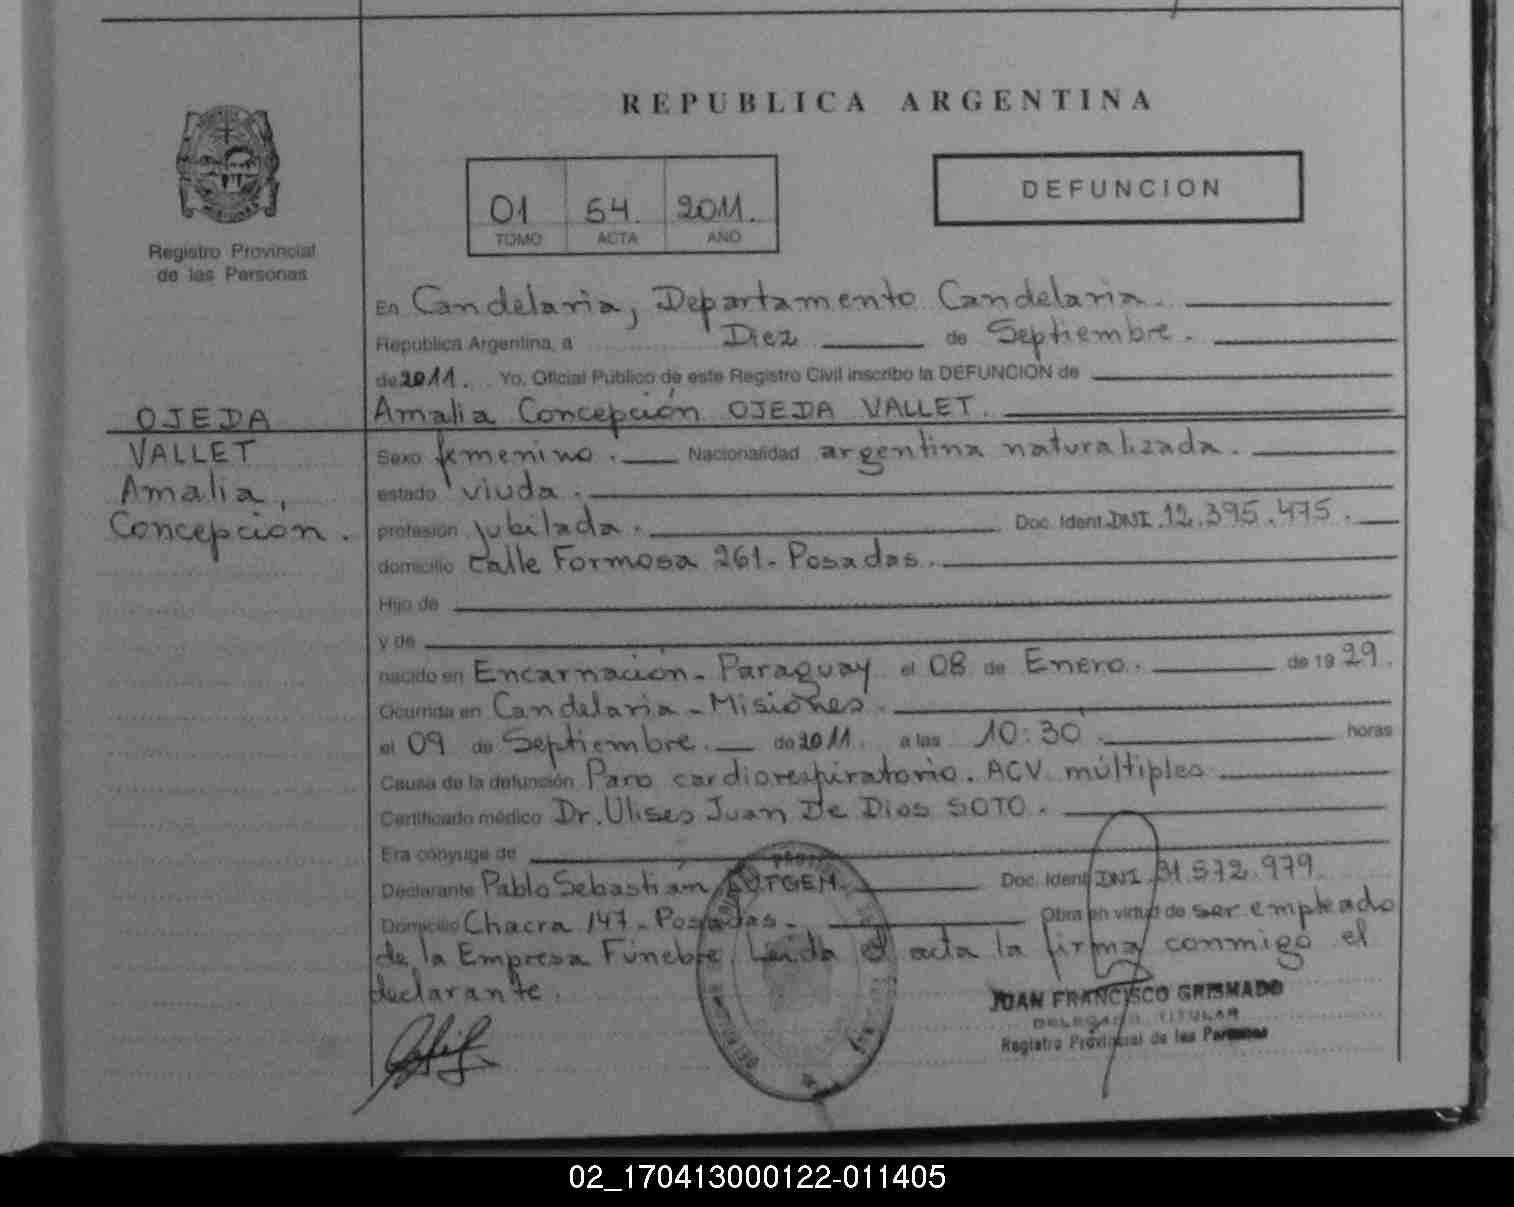 REPUBLICA ARGENTINA
01 54. 2011.
TOMO ACTA AÑO
DEFUNCION
Registro Provincial
de las Personas
En Candelaria, Departamento Candelaria.
Republica Argentina, a Diez de Septiembre.
de 2011. Yo, Oficial Publico de este Registro Civil inscribo la DEFUNCION de
Amalia Concepción OJEDA VALLET.
OJEDA
VALLET
Amalia,
Concepcion.
Sexo femenino. Nacionalidad argentina naturalizada.
estado viuda.
profesión jubilada. Doc. Ident. DNI. 12.395.475.
domicilio calle Formosa 261. Posadas.
Hijo de
y de
nacido en Encarnación. Paraguay el 08 de Enero. de 1929.
Ocurrida en Candelaria - Misiones.
el 09 de Septiembre. de 2011. a las 10:30 horas
Causa de la defunción Paro cardiorespiratorio. ACV múltiples
Certificado médico Dr. Ulises Juan De Dios SOTO.
Era cónyuge de
Declarante Pablo Sebastián Doc. Ident DNI. 31.572.979.
Domicilio Chacra 147 - Posadas. Obra en virtud de ser empleado
de la Empresa Fúnebre. Leída el acta la firma conmigo el
declarante.
JUAN FRANCISCO GRISMADO
DELEGADO TITULAR
Registro Provincial de las Personas
02_170413000122-011405